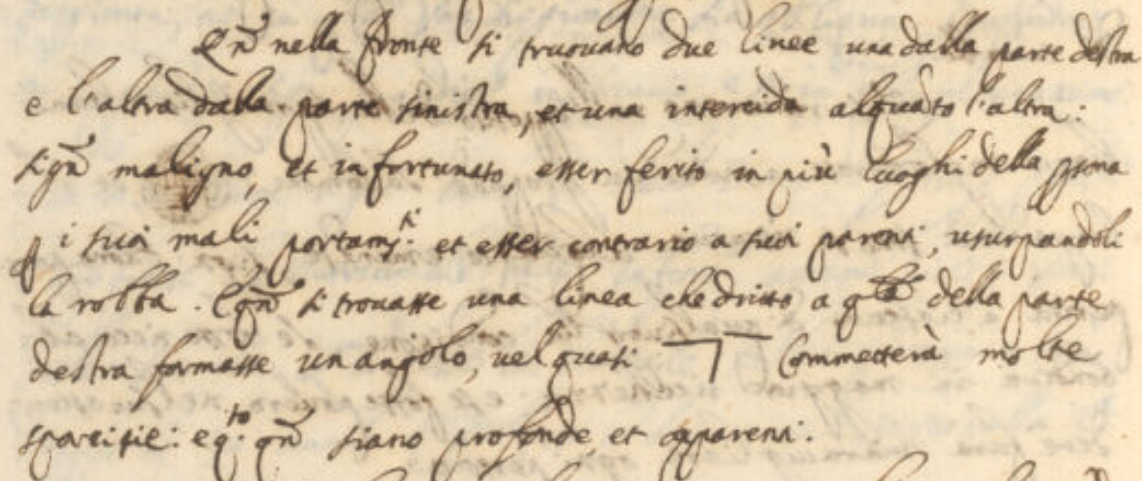 Qñ nella fronte si truouano due linee una dalla parte destra
e l'altra dalla parte sinistra, et una intercida alquãto l'altra:
sigñ maligno, et infortunato, esser ferito in più luoghi della psona
ꝑ i suoi mali portamti: et esser contrario a suoi parenti, usurpandoli
la robba. Eqñ si trouasse una linea che dritto a qlla della parte
destra formasse un angolo, uel quasi ¬ Commetterà molte
sporcitie: e qto: qñ siano profonde, et apparenti.